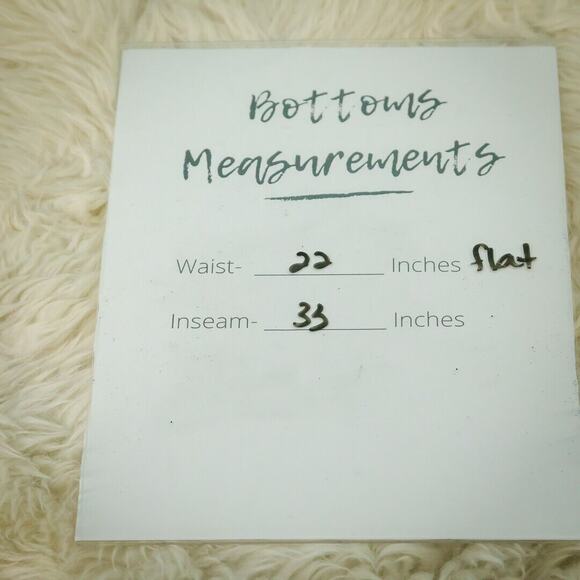 Bottoms
Measurements
Waist- 22 Inches flat
Inseam- 33 Inches